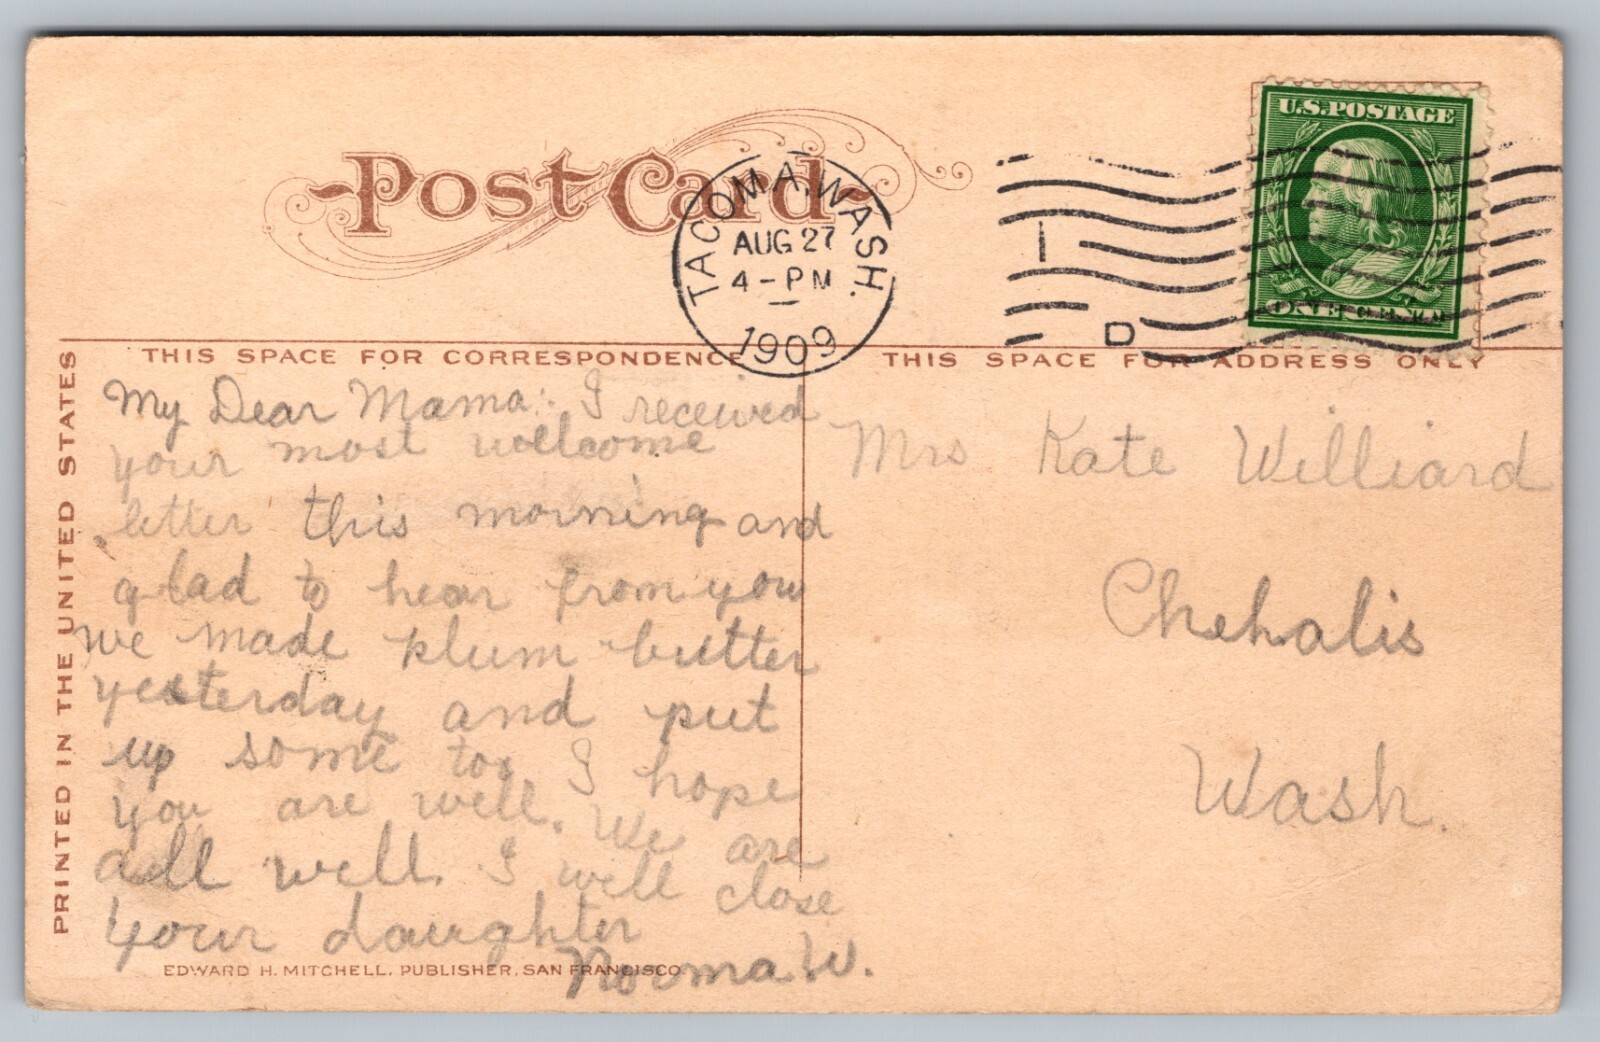 Post Card
U.S. POSTAGE
ONE CENT
TACOMA, WASH.
AUG 27
4-PM
1909
D
THIS SPACE FOR CORRESPONDENCE
THIS SPACE FOR ADDRESS ONLY
PRINTED IN THE UNITED STATES
My Dear Mama: I received
your most welcome
letter this morning and
glad to hear from you
we made plum butter
yesterday and put
up some too I hope
you are well. We are
all well. I well close
your daughter
Norma W.
EDWARD H. MITCHELL, PUBLISHER, SAN FRANCISCO
Mrs Kate Williard
Chehalis
Wash.